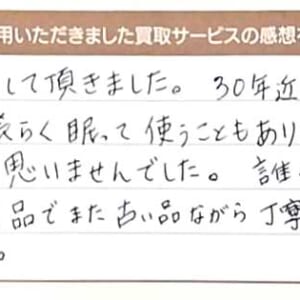 用いただきました買取サービスの感想を
して頂きました。30年近
らく眠って使うこともあり
思いませんでした。誰
品でまた古い品ながら丁寧
。